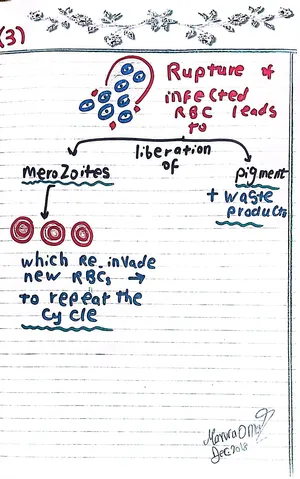 (3)
Rupture of
infected
RBC leads
to
liberation
of
merozoites
pigment
+ waste
products
which Re-invade
new RBCs →
to repeat the
cycle
Dec. 2018